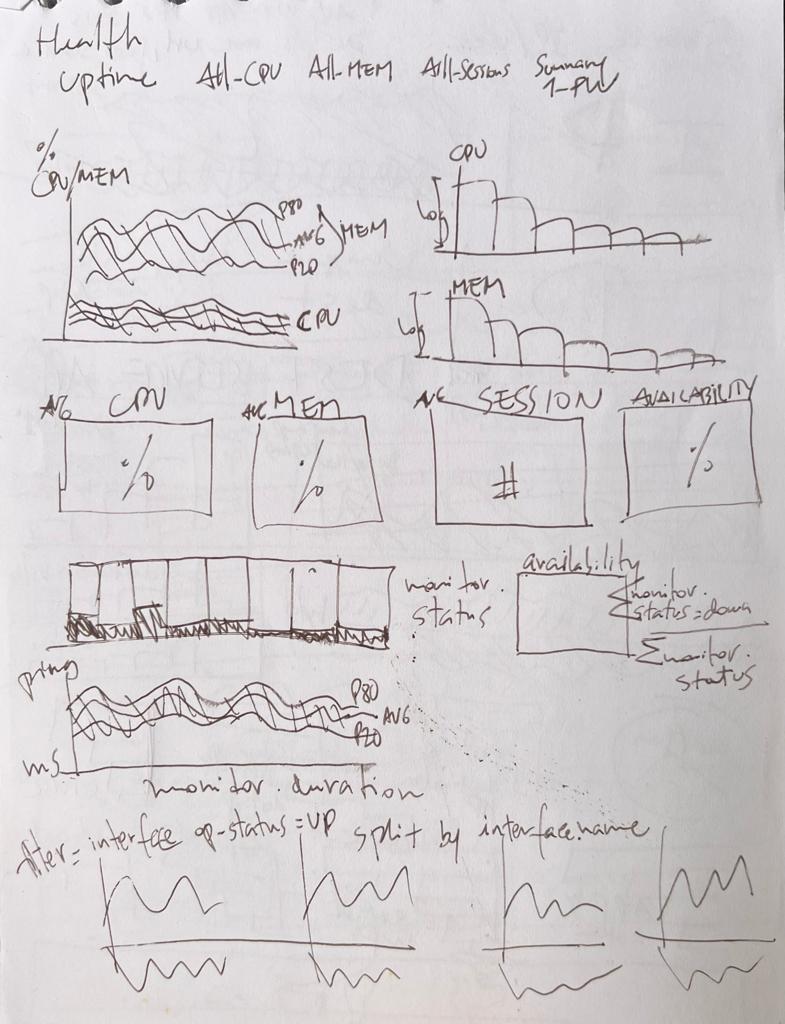 Health
Uptime All-CPU All-MEM All-Sessions Summary
%
CPU/MEM
P80
AVG
MEM
P20
CPU
CPU
MEM
AVG CPU
%
AVG MEM
%
AVG SESSION
#
AVAILABILITY
%
monitor.
status
availability
Σmonitor.
status=down
Σmonitor.
status
ping
P80
AVG
P20
ms
monitor.duration
filter= interface op-status=UP split by interface.name